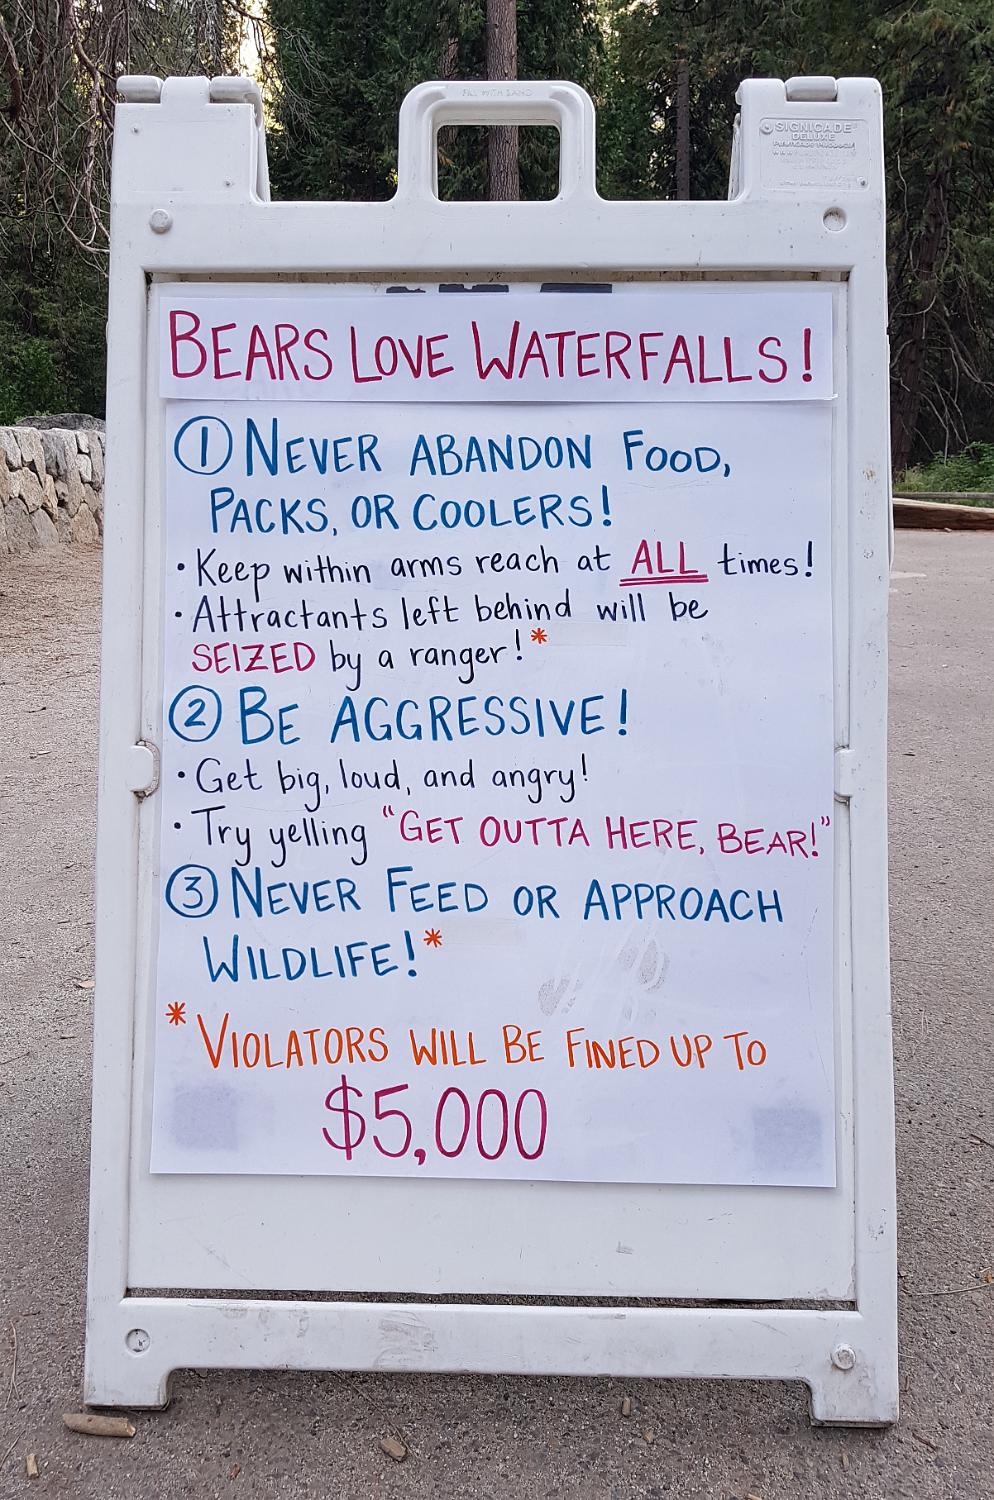 FILL WITH SAND
SIGNICADE
DELUXE
BEARS LOVE WATERFALLS!
① NEVER ABANDON FOOD,
PACKS, OR COOLERS!
· Keep within arms reach at ALL times!
· Attractants left behind will be
SEIZED by a ranger!*
② BE AGGRESSIVE!
· Get big, loud, and angry!
· Try yelling "GET OUTTA HERE, BEAR!"
③ NEVER FEED OR APPROACH
WILDLIFE!*
*VIOLATORS WILL BE FINED UP TO
$5,000